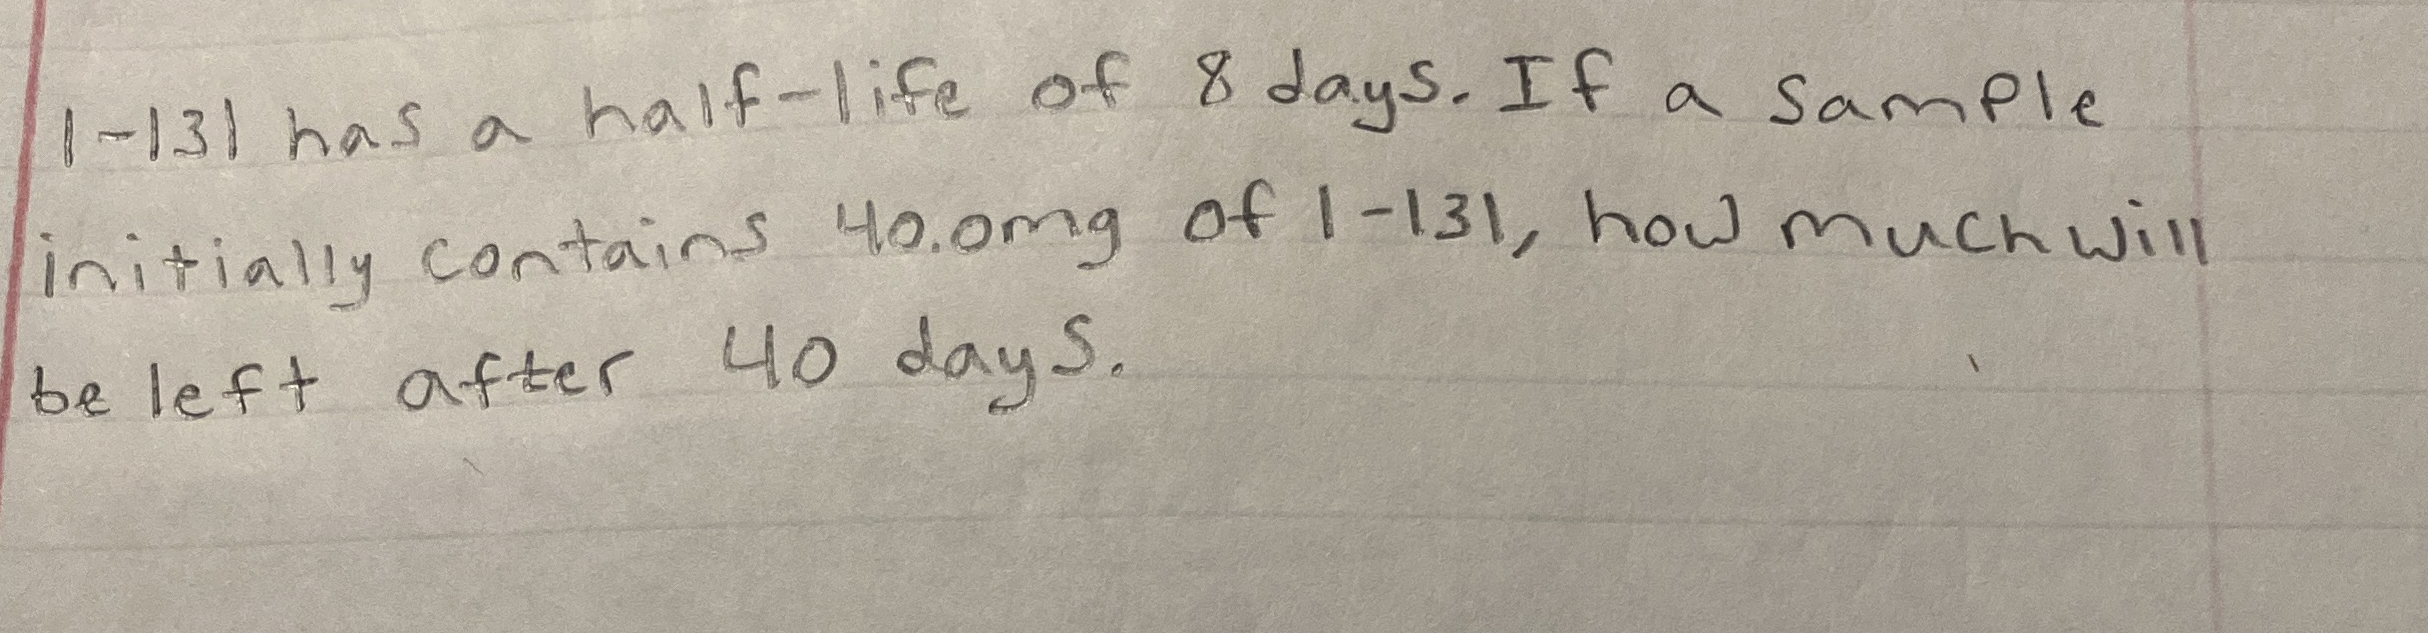 I-131 has a half-life of 8 days. If a sample
initially contains 40.0mg of I-131, how much will
be left after 40 days.